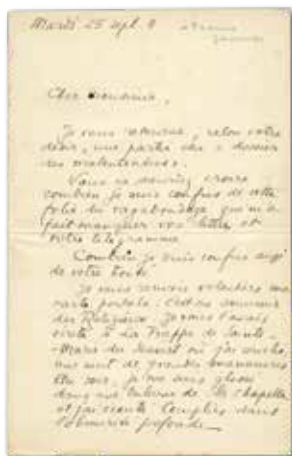 Mardi 25 sept.
Cher monsieur,
Je vous retourne, selon votre
désir, une partie du « dossier
des malentendus ».
Vous ne sauriez croire
combien je suis confus de cette
folie de vagabondage qui m'a
fait manquer vos lettres et
votre télégramme.
Combien je suis confus aussi
de votre bonté.
Je vous renvois volontiers ma
carte postale : c'est un souvenir
des Religieux. Je vous l'avais
écrite à La Trappe de Sainte-
-Marie du Désert où j'ai couché,
une nuit de grandes manœuvres
Un soir, je me suis glissé
dans une tribune de la chapelle
et j'ai écouté Complies dans
l'obscurité profonde_